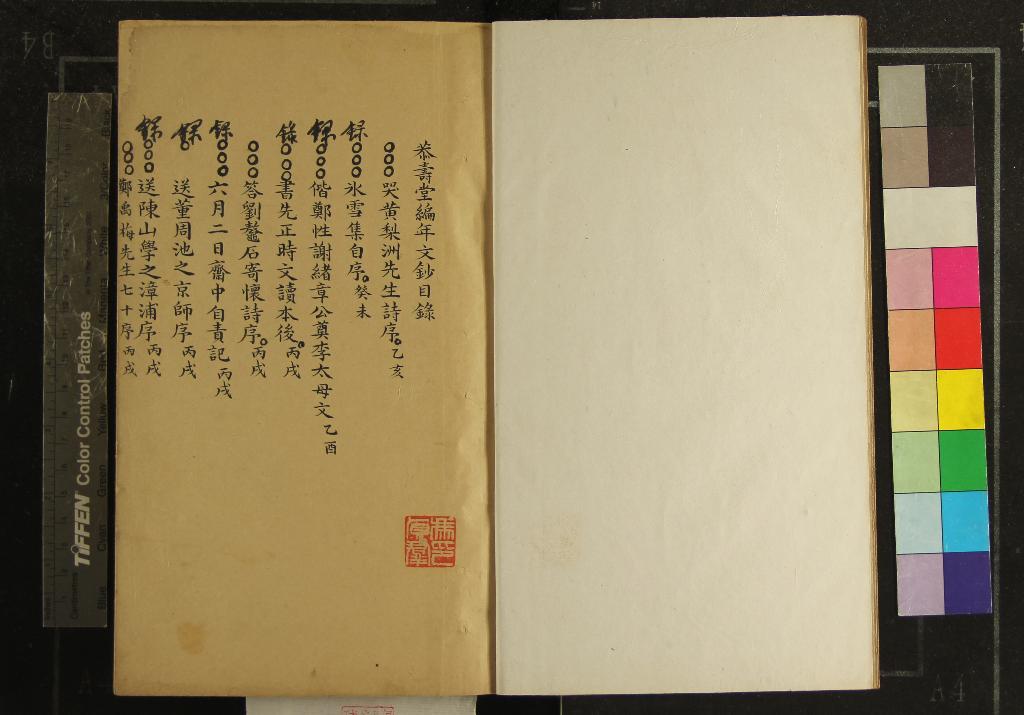 恭壽堂編年文鈔目錄
○○○哭黃梨洲先生詩序。乙亥
録○○○氷雪集自序。癸未
録○○○偕鄭性謝緒章公奠李太母文乙酉
錄○○○書先正時文讀本後。丙戌
○○○答劉鼇石寄懷詩序。丙戌
録○○○六月二日齋中自責記丙戌
録 送董周池之京師序丙戌
録○○○送陳山學之漳浦序丙戌
○○○鄭禹梅先生七十序丙戌
TIFFEN Color Control Patches
Centimetres
Blue
Cyan
Green
Yellow
Red
B4
A4
A